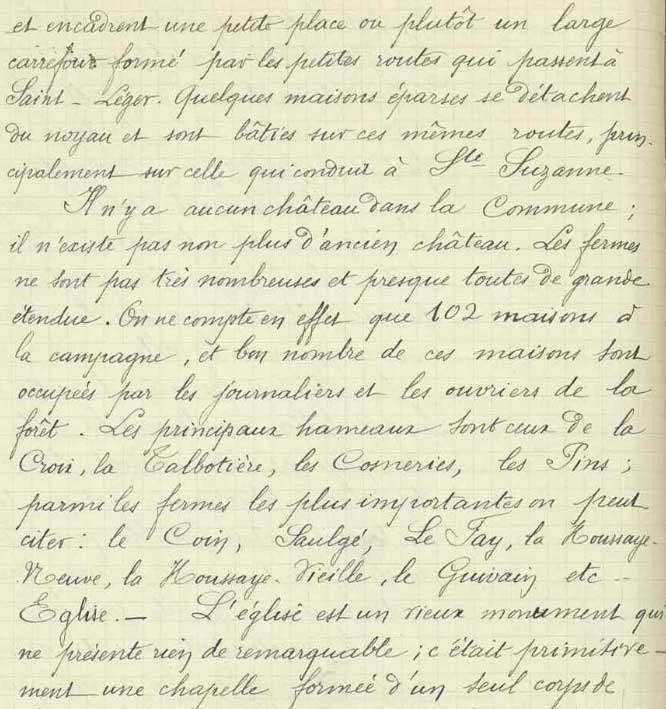 et encadrent une petite place ou plutôt un large
carrefour formé par les petites routes qui passent à
Saint-Léger. Quelques maisons éparses se détachent
du noyau et sont bâties sur ces mêmes routes, prin-
cipalement sur celle qui conduit à Ste Suzanne.
Il n'y a aucun château dans la Commune ;
il n'existe pas non plus d'ancien château. Les fermes
ne sont pas très nombreuses et presque toutes de grande
étendue. On ne compte en effet que 102 maisons à
la campagne, et bon nombre de ces maisons sont
occupées par les journaliers et les ouvriers de la
forêt. Les principaux hameaux sont ceux de la
Croix, la Talbotière, les Cosneries, les Pins ;
parmi les fermes les plus importantes on peut
citer : le Coin, Saulgé, Le Fay, la Houssaye-
Neuve, la Houssaye-Vieille, le Guivain etc --
Eglise. — L'église est un vieux monument qui
ne présente rien de remarquable ; c'était primitive-
ment une chapelle formée d'un seul corps de